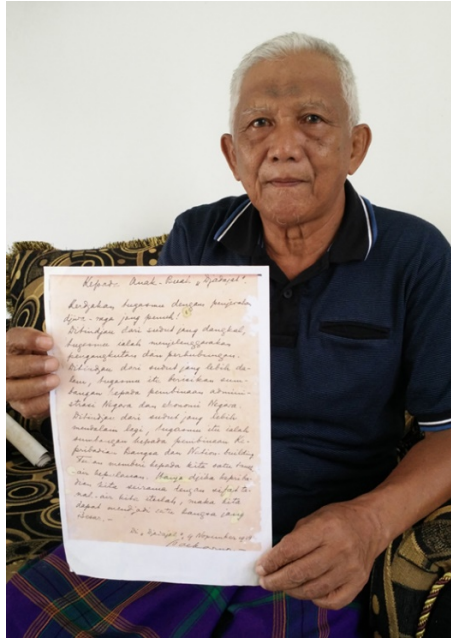 Kepada Anak-Buah „Djadajat".
Kerdjakan tugasmu dengan penjerahan
djiwa-raga jang penuh!
Ditindjau dari sudut jang dangkal,
tugasmu ialah menjelenggarakan
pengangkutan dan perhubungan.
Ditindjau dari sudut jang lebih da-
lam, tugasmu itu berisikan sum-
bangan kepada pembinaan admini-
strasi Negara dan ekonomi Negara
Ditindjau dari sudut jang lebih
mendalam lagi, tugasmu itu ialah
sumbangan kepada pembinaan Ke-
pribadian Bangsa dan Nation-building
Tuhan memberi kepada kita satu tanah
air kepulauan. Hanya djika kepriba-
dian kita seirama dengan sifat ta-
nah-air kita itulah, maka kita
dapat mendjadi satu bangsa jang
besar. -
Di „Djadajat", 4 Nopember
Soekarno